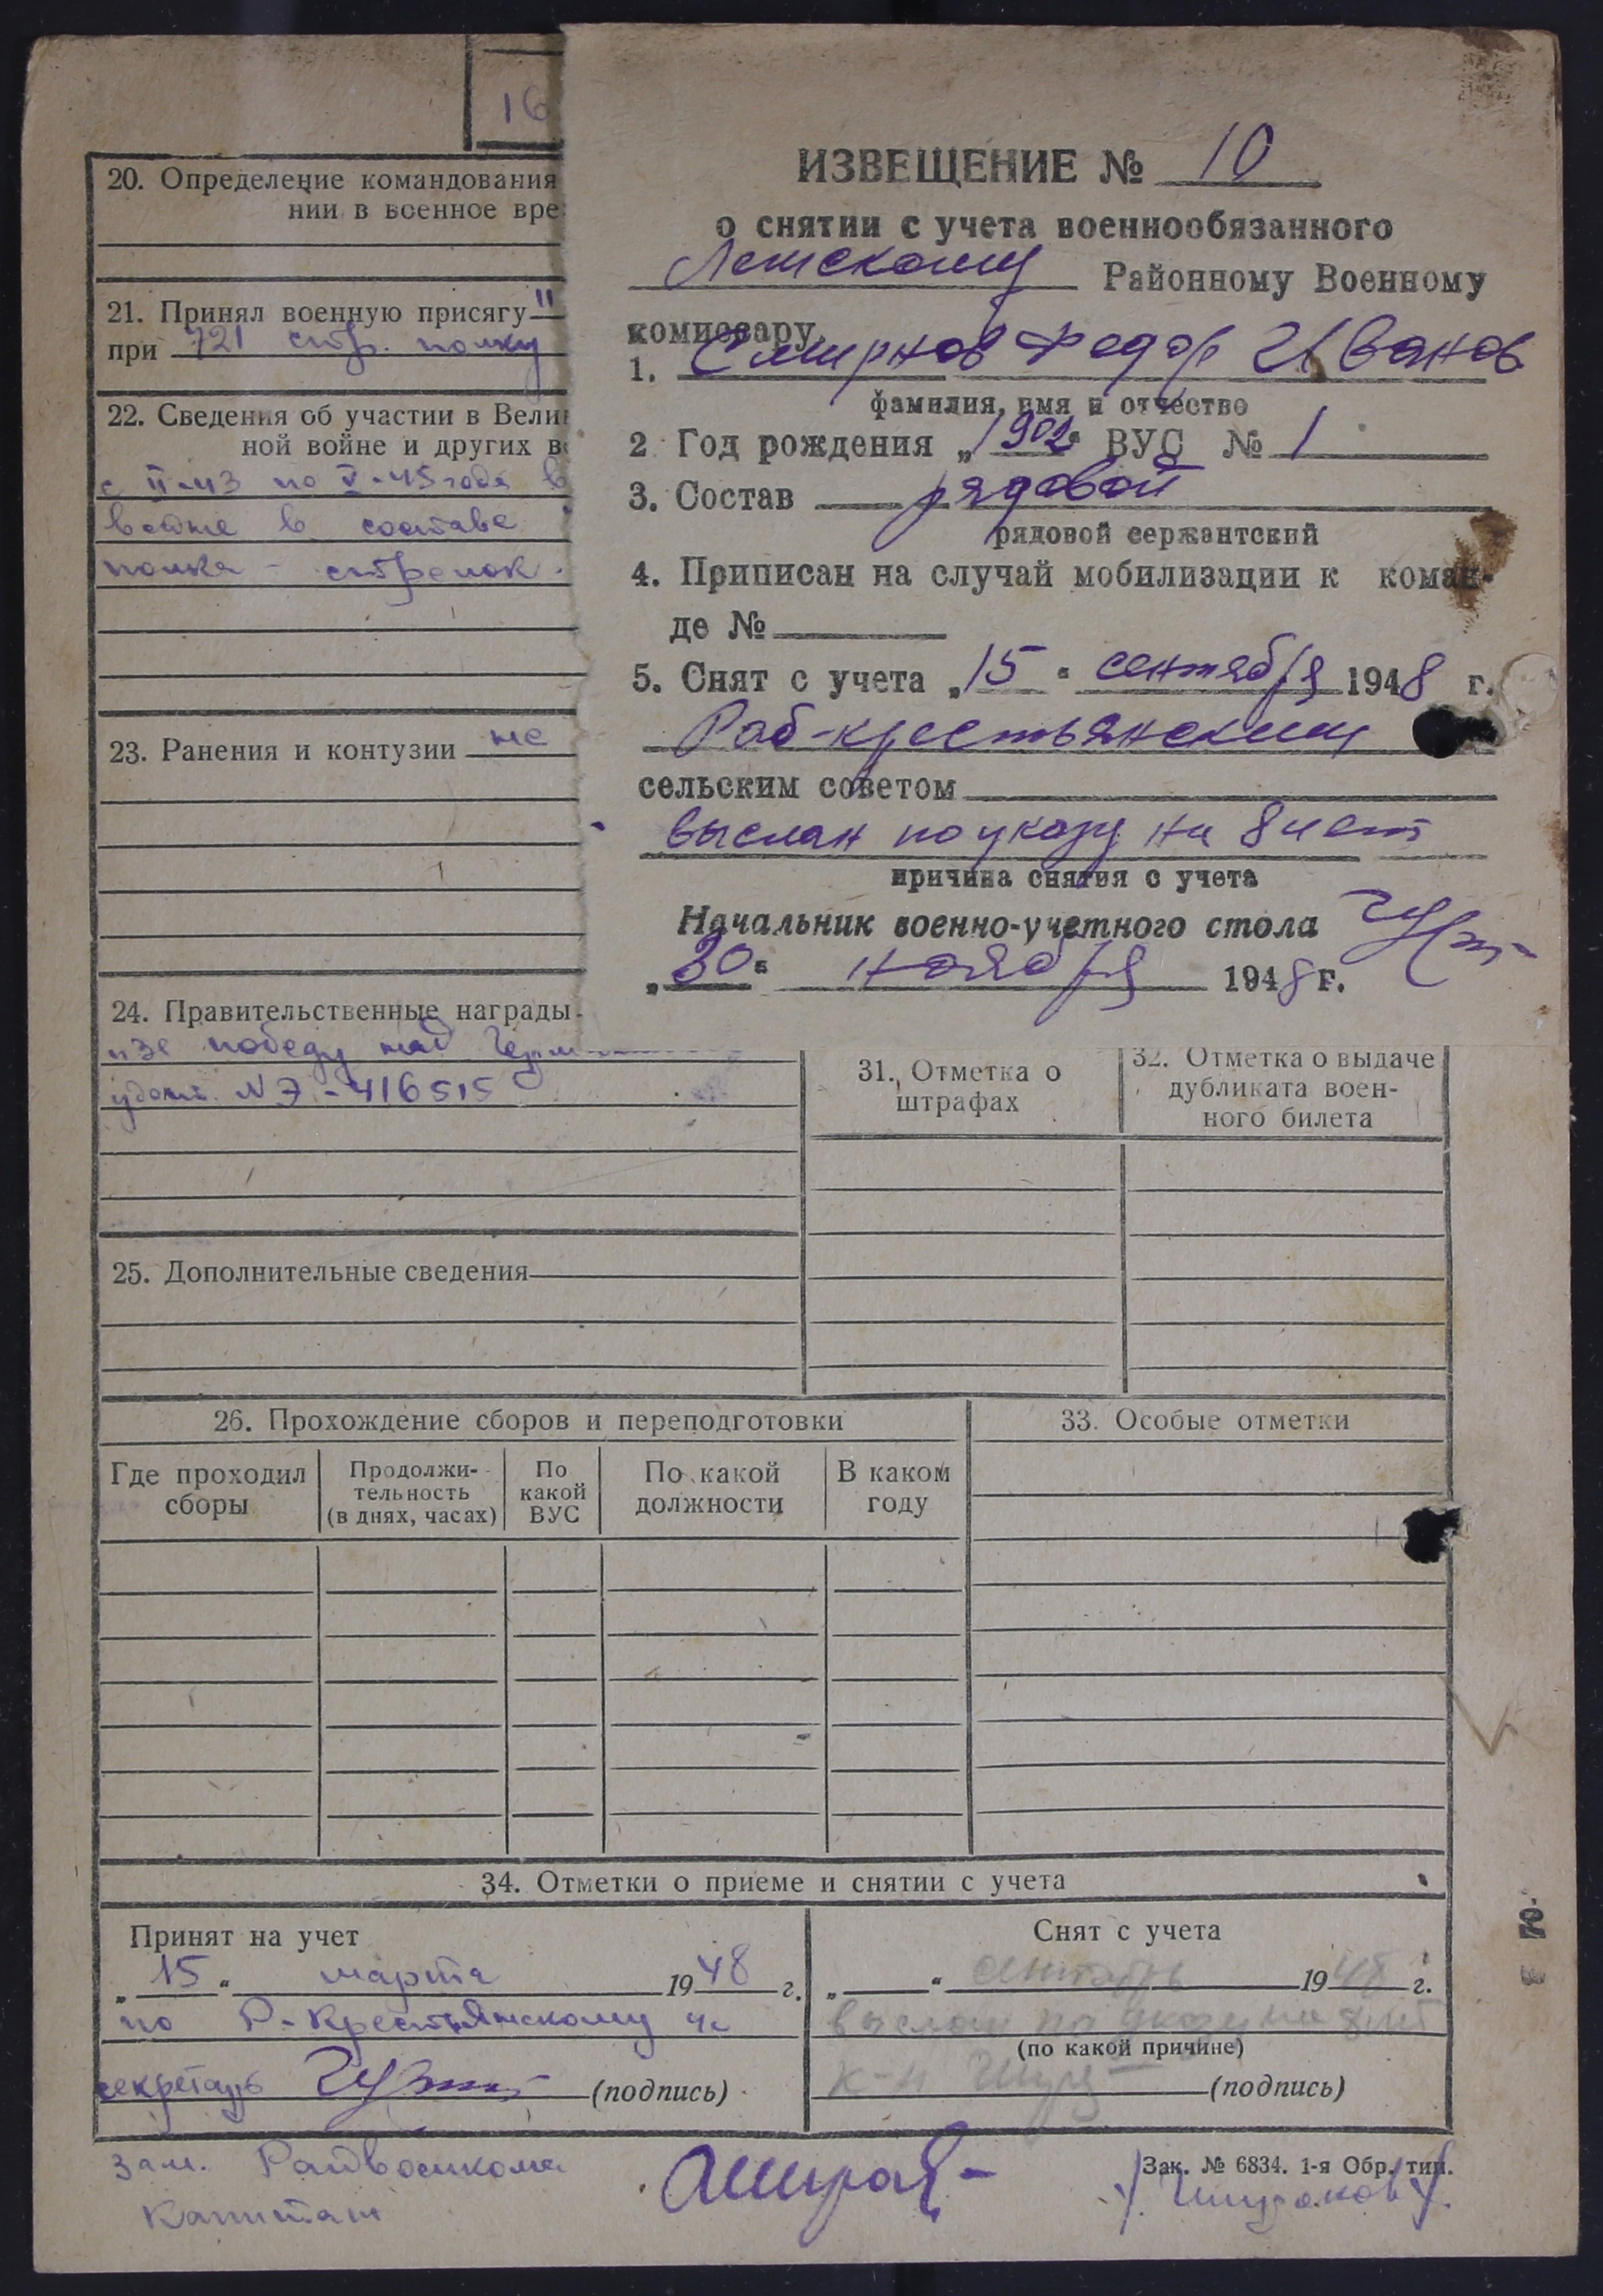 16
20. Определение командования
нии в военное вре
21. Принял военную присягу "
при 721 стр. полку
22. Сведения об участии в Вели
ной войне и других в
с II-43 по V-45 года в
войне в составе
полка - стрелок.
23. Ранения и контузии не
24. Правительственные награды
"за победу над Герм
удост. № Э-416515
25. Дополнительные сведения
ИЗВЕЩЕНИЕ № 10
о снятии с учета военнообязанного
Районному Военному
комиссару
1. Смирнов Федор Иванов
фамилия, имя и отчество
2 Год рождения „1902" ВУС № 1
3. Состав рядовой
рядовой сержантский
4. Приписан на случай мобилизации к коман-
де №
5. Снят с учета „15" сентября 1948 г.
Раб-крестьянским
сельским советом
выслан по указу на 8 лет
причина снятия с учета
Начальник военно-учетного стола
„30" ноября 1948 г.
31. Отметка о
штрафах
32. Отметка о выдаче
дубликата воен-
ного билета
26. Прохождение сборов и переподготовки
Где проходил
сборы
Продолжи-
тельность
(в днях, часах)
По
какой
ВУС
По какой
должности
В каком
году
33. Особые отметки
34. Отметки о приеме и снятии с учета
Принят на учет
„15" марта 1948 г.
по Р-Крестьянскому
секретарь (подпись)
Снят с учета
„ " сентябрь 1948 г.
выслан по указу на 8 лет
(по какой причине)
к-н (подпись)
зам. Райвоенкома
капитан
Зак. № 6834. 1-я Обр. тип.